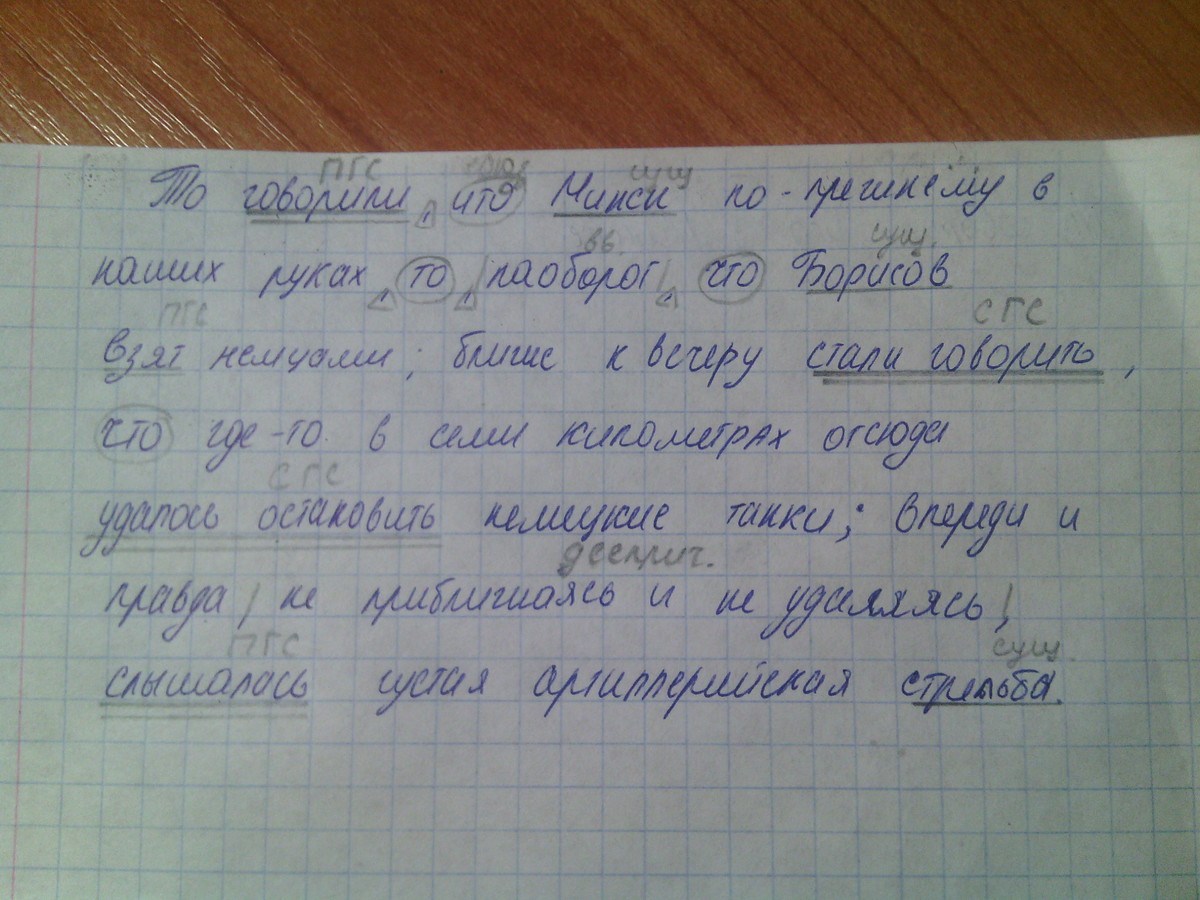 ПГС сущ
То говорили, что Минск по-прежнему в
вв. сущ.
наших руках, то, наоборот, что Борисов
ПГС СГС
взят немцами; ближе к вечеру стали говорить,
что где-то в семи километрах отсюда
СГС
удалось остановить немецкие танки; впереди и
дееприч.
правда, не приближаясь и не удаляясь,
ПГС сущ.
слышалась густая артиллерийская стрельба.